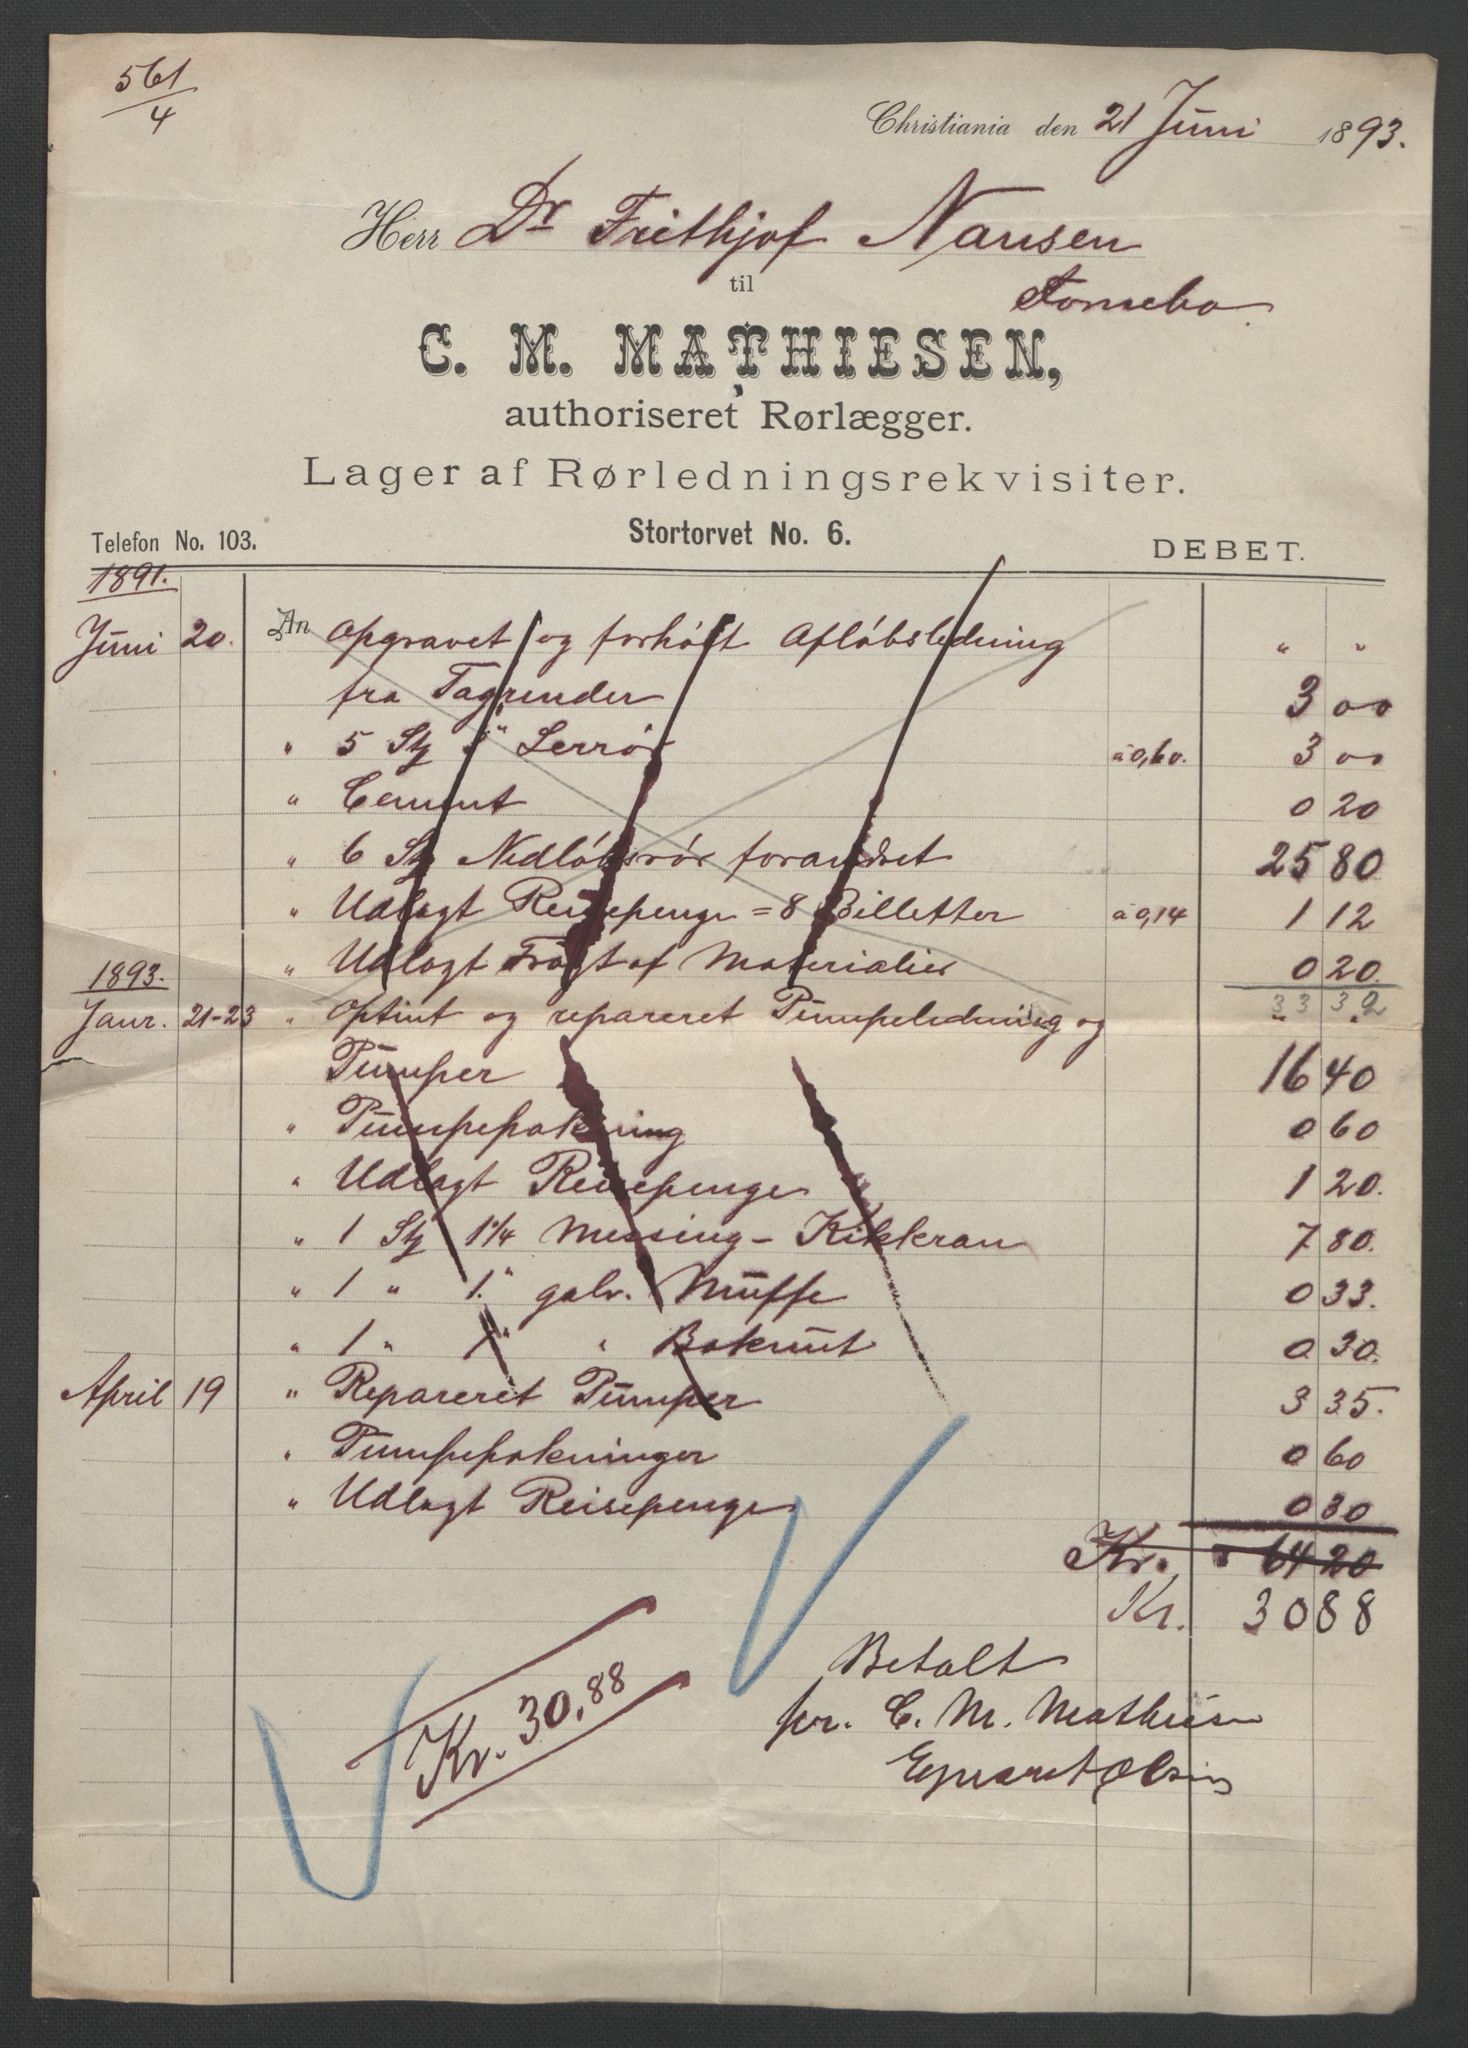 561
4
Christiania den 21 Juni 1893.
Herr Dr Frithjof Nansen
til
C. M. MATHIESEN,
authoriseret Rørlægger.
Lager af Rørledningsrekvisiter.
Telefon No. 103. Stortorvet No. 6. DEBET.
1891.
Juni 20. An Opgravet og forhöit Aflöbsledning " "
fra Tagrender 3 00
" 5 St Lerrör à 0,60. 3 00
" Cement 0 20
" 6 St Nedlöbsrör forandret 25 80
" Udlagt Reisepenge = 8 Billetter à 0,14 1 12
" Udlagt Fragt af Materialier 0 20.
33 32
1893.
Janr. 21-23 " Optint og repareret Pumpeledning og "
Pumper 16 40
" Pumpepakning 0 60
" Udlagt Reisepenge 1 20.
" 1 St 1 1/4 Messing-Kikkran 7 80.
" 1 " 1" galv. Muffe 0 33.
" 1 " 1" " Bakmut 0 30.
April 19 " Repareret Pumper 3 35.
" Pumpepakninger 0 60
" Udlagt Reisepenge 0 30
Kr. 64 20
Kr. 30 88
Kr. 30,88
Betalt
for. C. M. Mathiesen